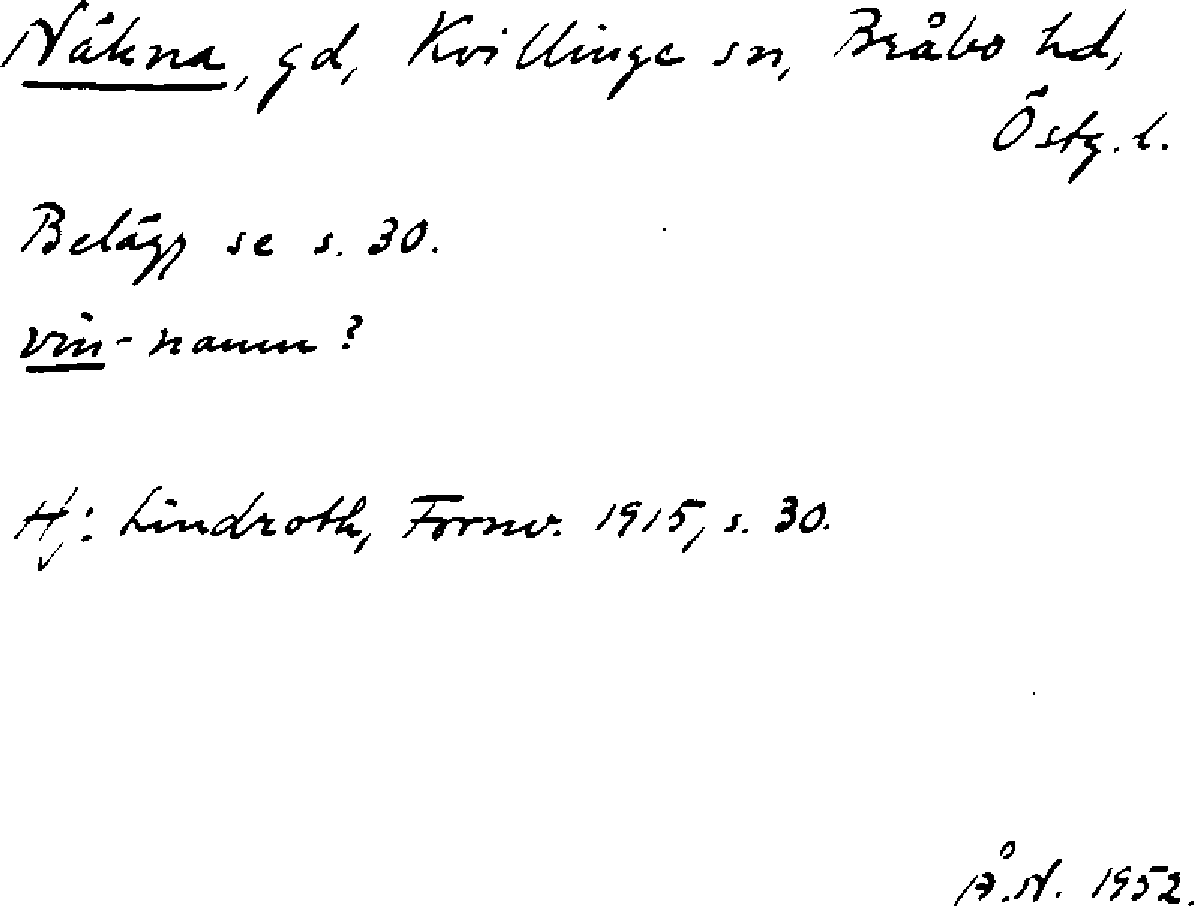 Näkna, gd, Kvillinge sn, Bråbo hd,
Östg. l.
Belägg se s. 30.
vin-namn?
Hj. Lindroth, Fornv. 1915, s. 30.
Å.N. 1952.